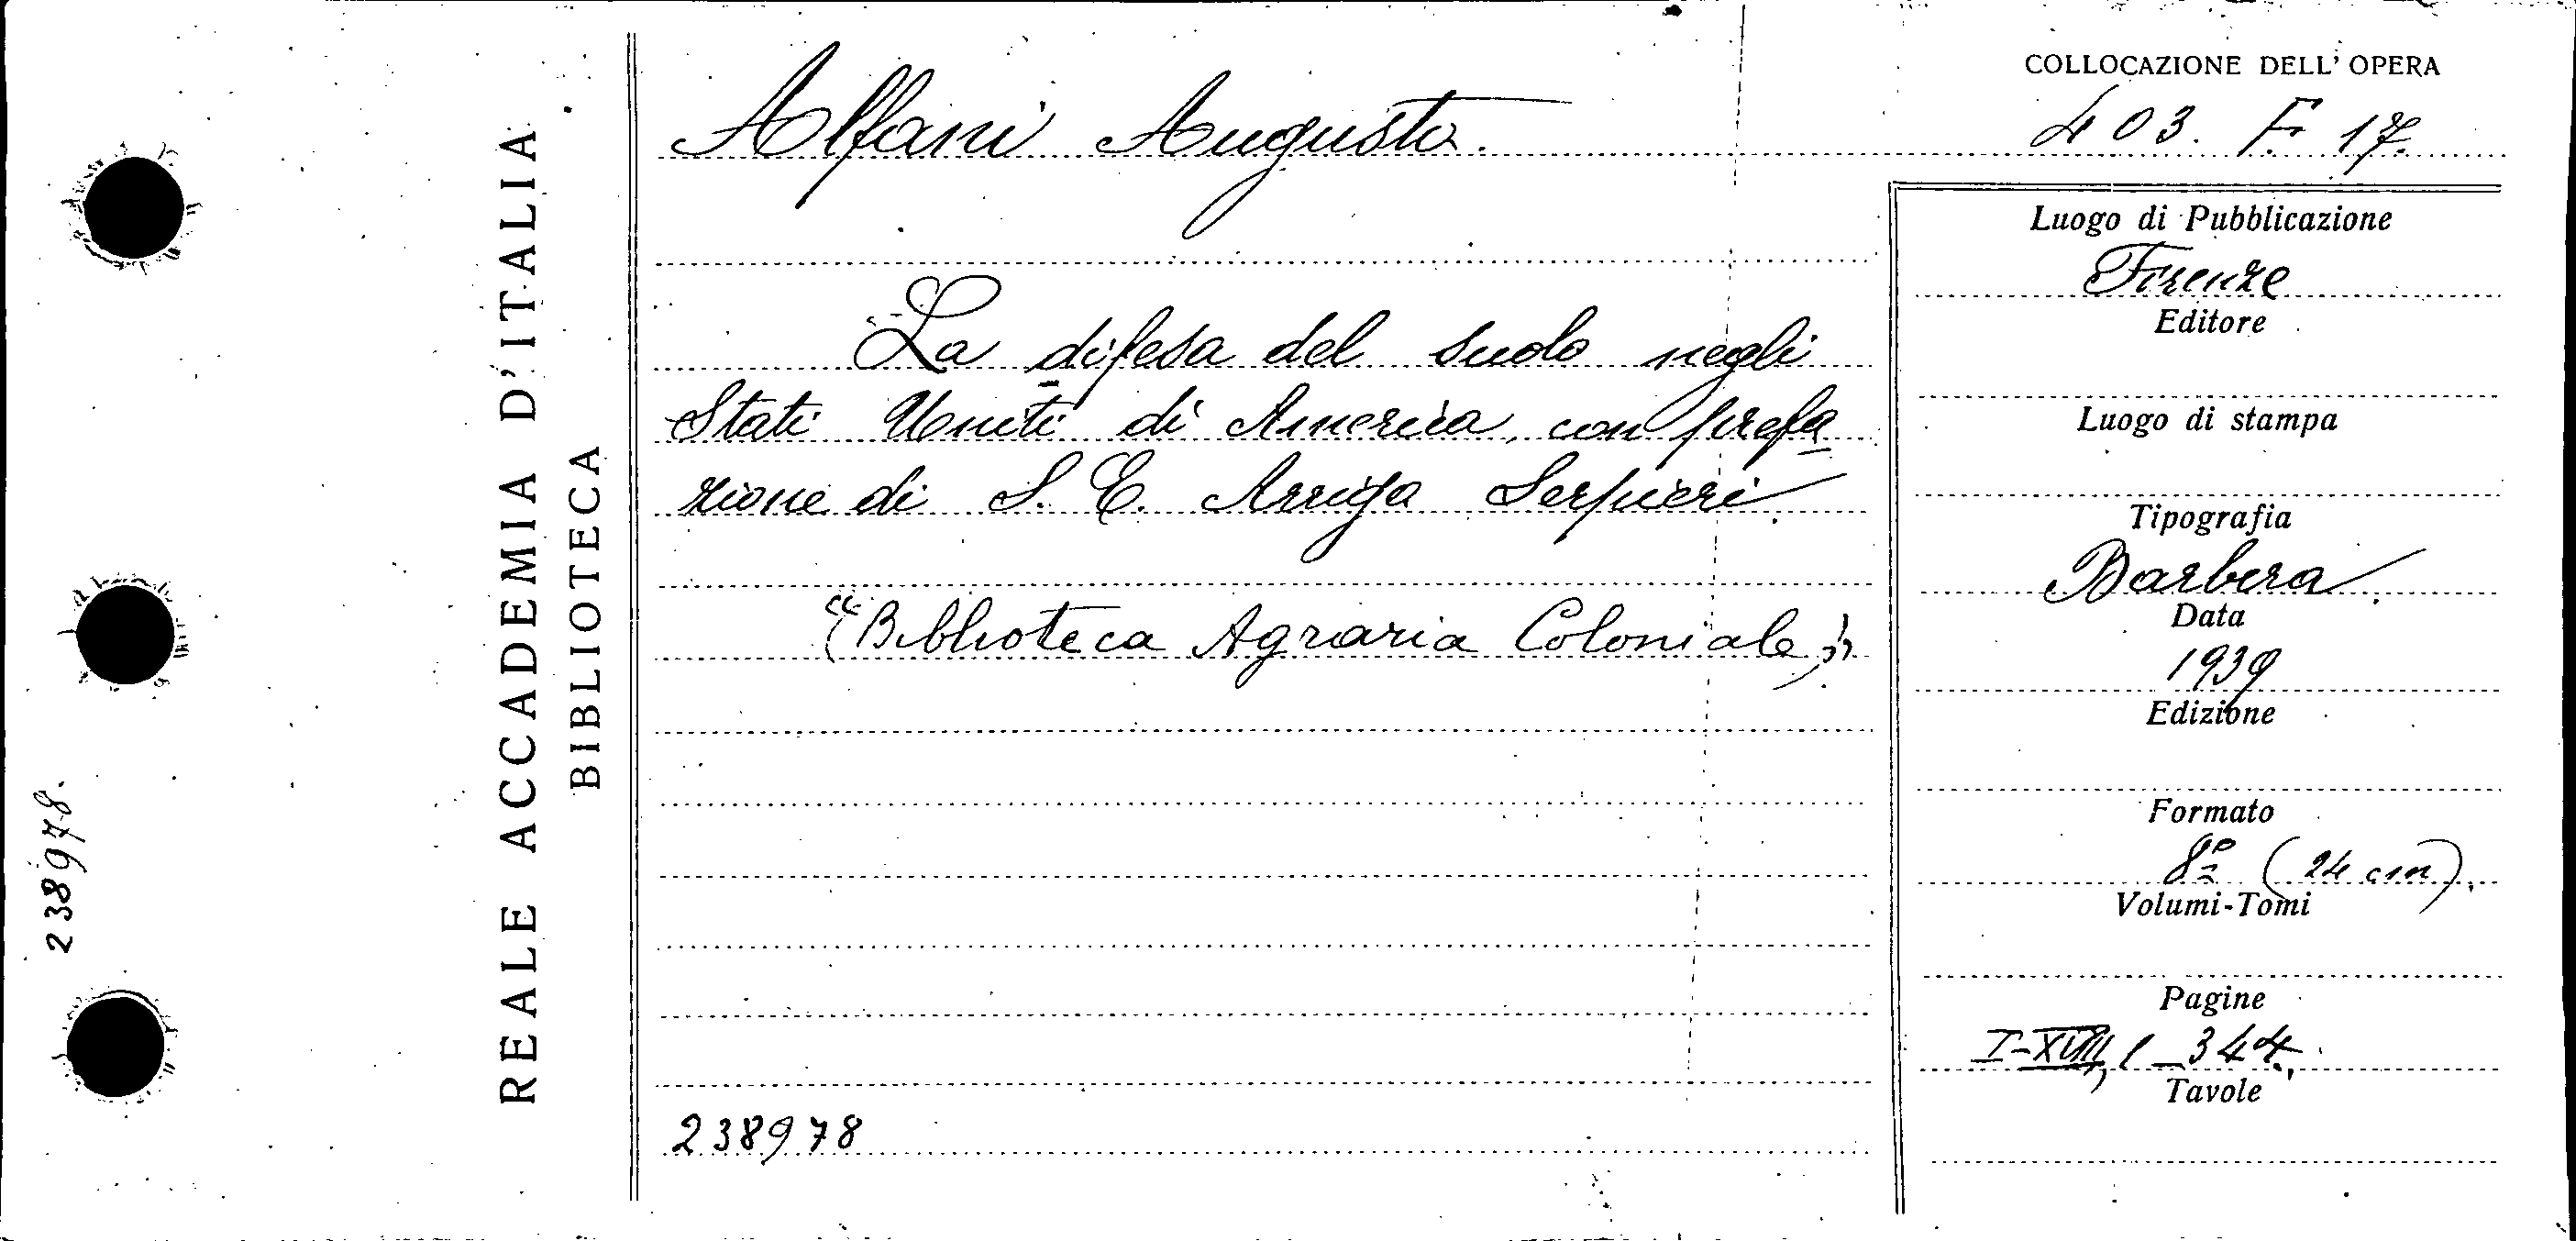 REALE ACCADEMIA D'ITALIA
BIBLIOTECA
238978.
Alfani Augusto.
La difesa del suolo negli
Stati Uniti di America, con prefa
zione di S. E. Arrigo Serpieri.
("Biblioteca Agraria Coloniale„).
238978
COLLOCAZIONE DELL'OPERA
403. F. 17.
Luogo di Pubblicazione
Firenze
Editore
Luogo di stampa
Tipografia
Barbera.
Data
1939
Edizione
Formato
8º (24 cm).
Volumi-Tomi
Pagine
I-XVIII, 1-344.
Tavole